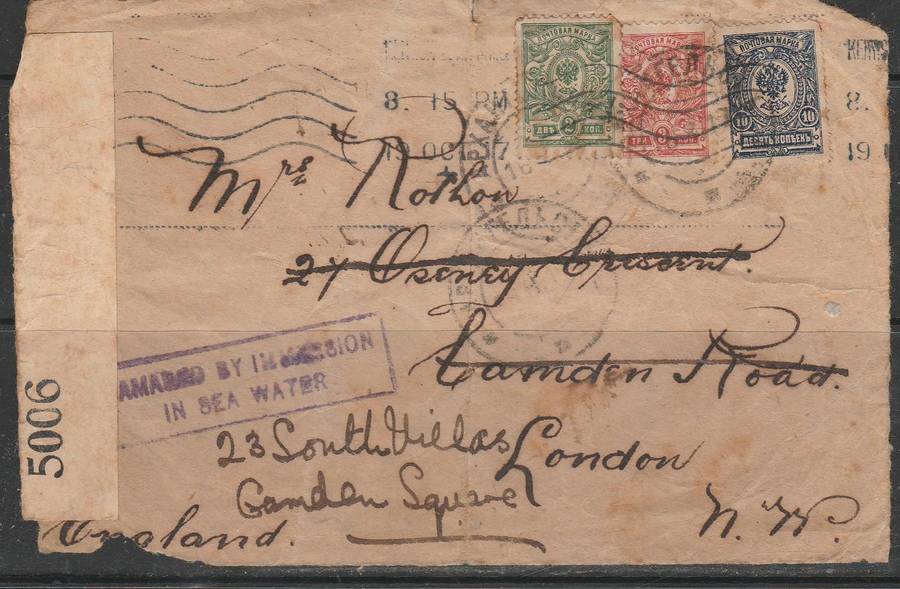 ПОЧТОВАЯ МАРКА
ДВѢ 2 КОП.
ПОЧТОВАЯ МАРКА
ТРИ 3 КОП.
ПОЧТОВАЯ МАРКА
10 10
ДЕСЯТЬ КОПѢЕКЪ
8. 15 PM
8.
19 OCT 17
19
Mrs Rothon
27 Oseney Crescent.
Camden Road.
BY IMMERSION
IN SEA WATER
5006
23 South Villas
Camden Square
London
N.W.
England.